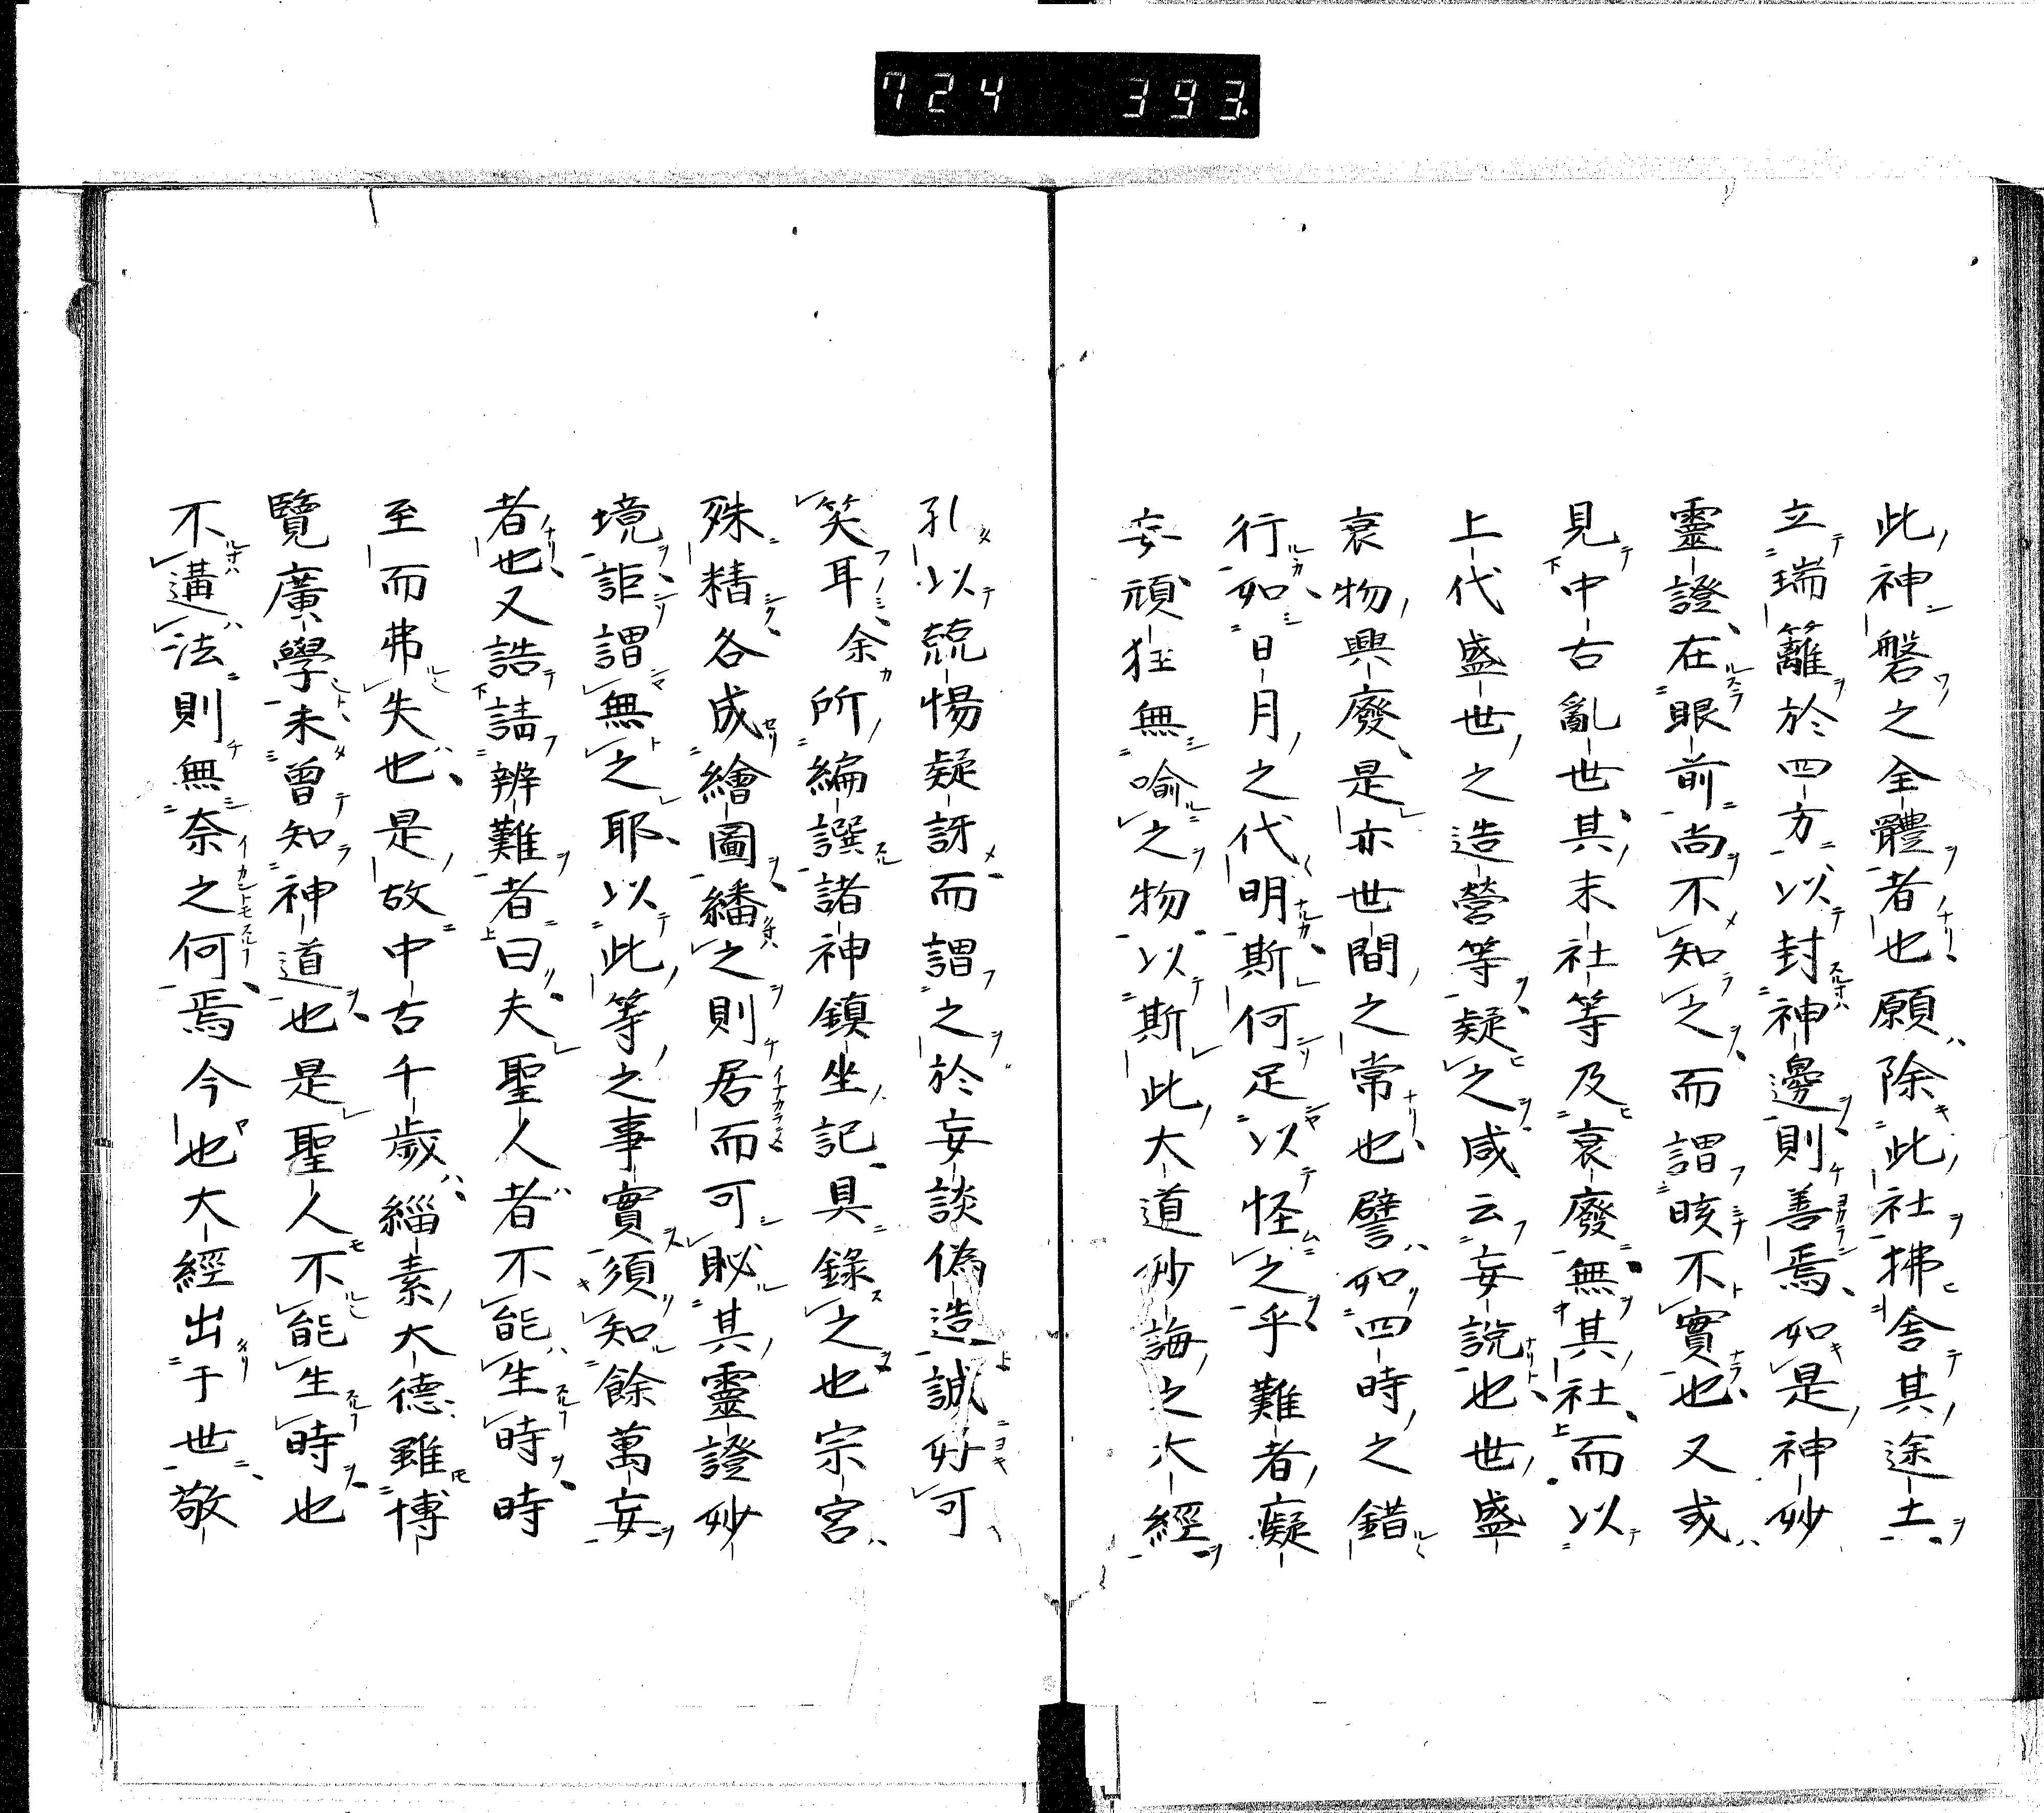 724 393.
此神磐之全體者也願除此社拂舍其途土
立瑞籬於四方以封神邊則善焉如是神妙
靈證在眼前尚不知之而謂晐不實也又或
見中古亂世其末社等及衰廢無其社而以
上代盛世之造營等疑之咸云妄說也世盛
衰物興廢是亦世間之常也譬如四時之錯
行如日月之代明斯何足以怪之乎難者癡
妄頑狂無喻之物以斯此大道妙誨之大經
孔以兢惕疑訝而謂之於妄談偽造誠好可
笑耳余所編譔諸神鎮坐記具錄之也宗宮
殊精各成繪圖繙之則居而可眇其靈證妙
境詎謂無之耶以此等之事實須知餘萬妄
者也又誥請辨難者曰夫聖人者不能生時時
至而弗失也是故中古千歲緇素大德雖博
覽廣學未曾知神道也是聖人不能生時也
不遘法則無奈之何焉今也大經出于世敬